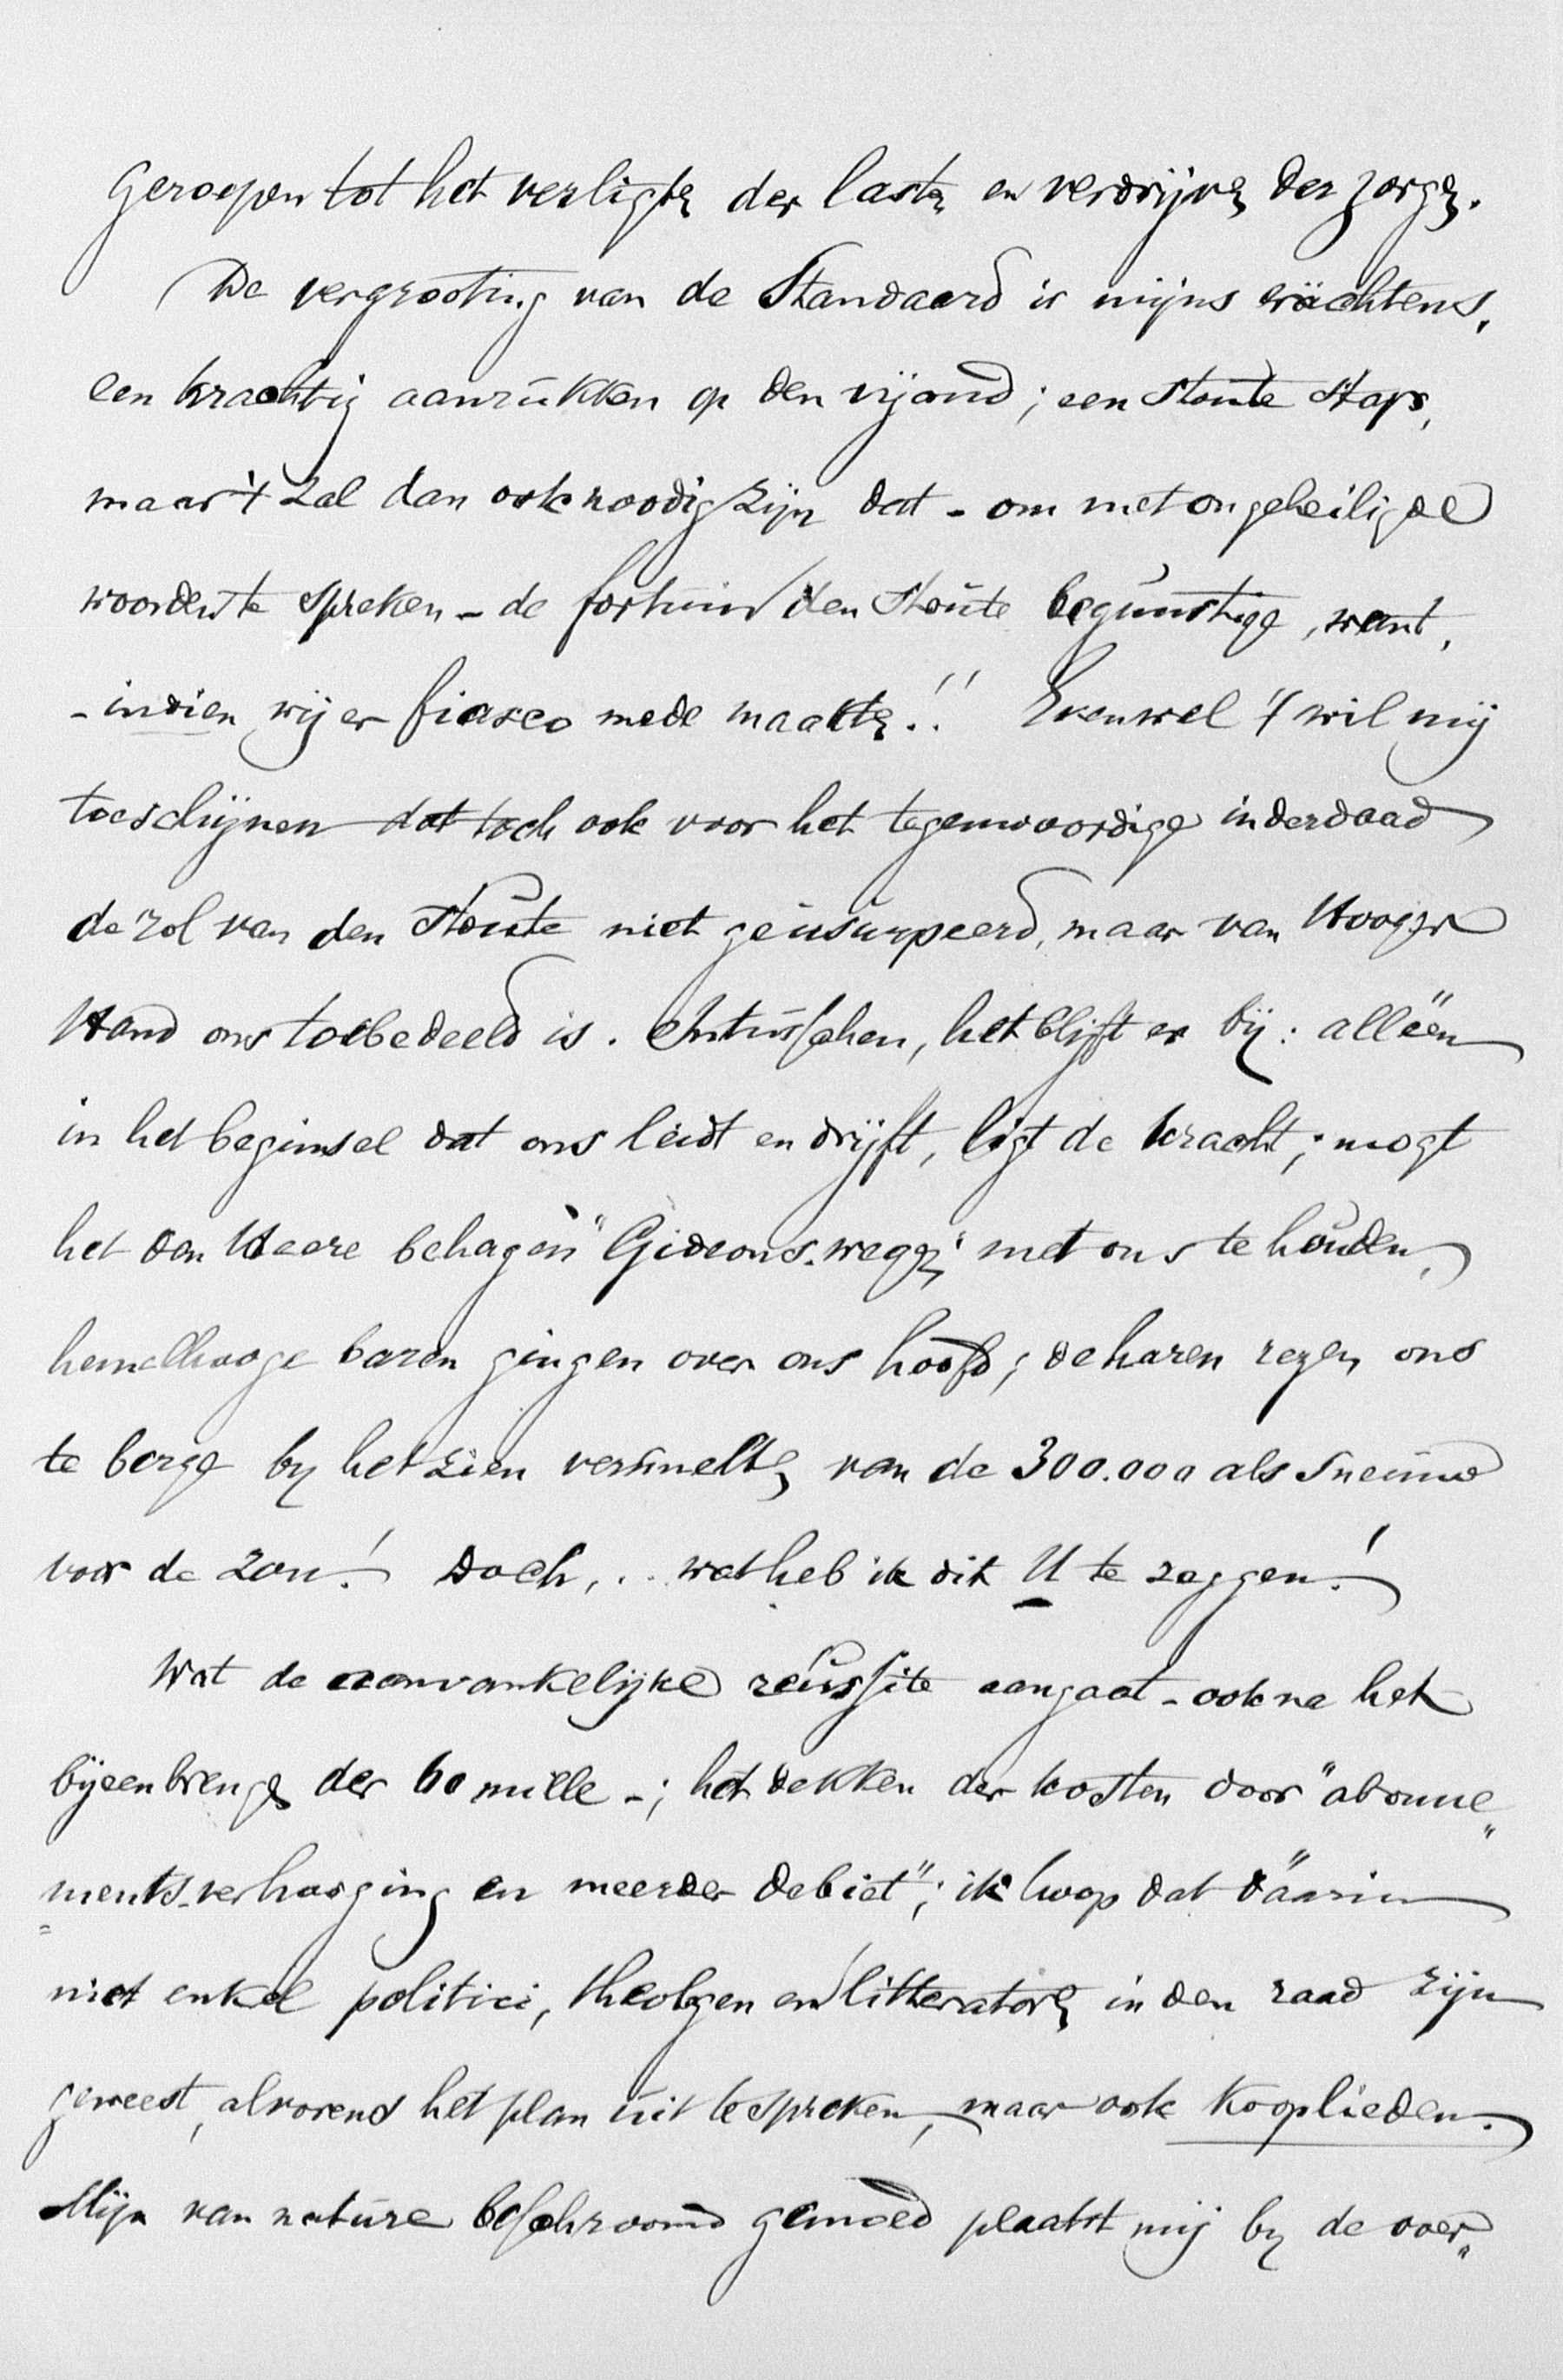 geroepen tot het verligten der lasten en verdrijven der zorgen.
De vergrooting van de Standaard is mijns erachtens,
een krachtig aanrukken op den vijand; een stoute stap,
maar 't zal dan ook noodig zijn dat - om met ongeheiligde
woorden te spreken - de fortuin den stoute begunstige, want,
- indien wij er fiasco mede maakten!! Evenwel 't wil mij
toeschijnen dat toch ook voor het tegenwoordige inderdaad
de rol van den stoute niet geüsurpeerd, maar van Hooger
Hand ons toebedeeld is. Intusschen, het blijft er bij: alléén
in het beginsel dat ons leidt en drijft, ligt de kracht; mogt
het den Heere behagen "Gideons-wegen" met ons te houden,
hemelhooge baren gingen over ons hoofd; de haren rezen ons
te berge by het zien versmelten van de 300.000 als sneeuw
voor de zon! Doch, .. wat heb ik dit U te zeggen!
Wat de aanvankelijke réussite aangaat - ook na het
bijeenbrengen der 60 mille -; het dekken der kosten door "abonne„
„ments-verhooging en meerder debiet"; ik hoop dat dáárin
niet enkel politici, theologen en litteratoren in den raad zijn
geweest, alvorens het plan uit te spreken, maar ook kooplieden.
Mijn van nature beschroomd gemoed plaatst mij by de over„